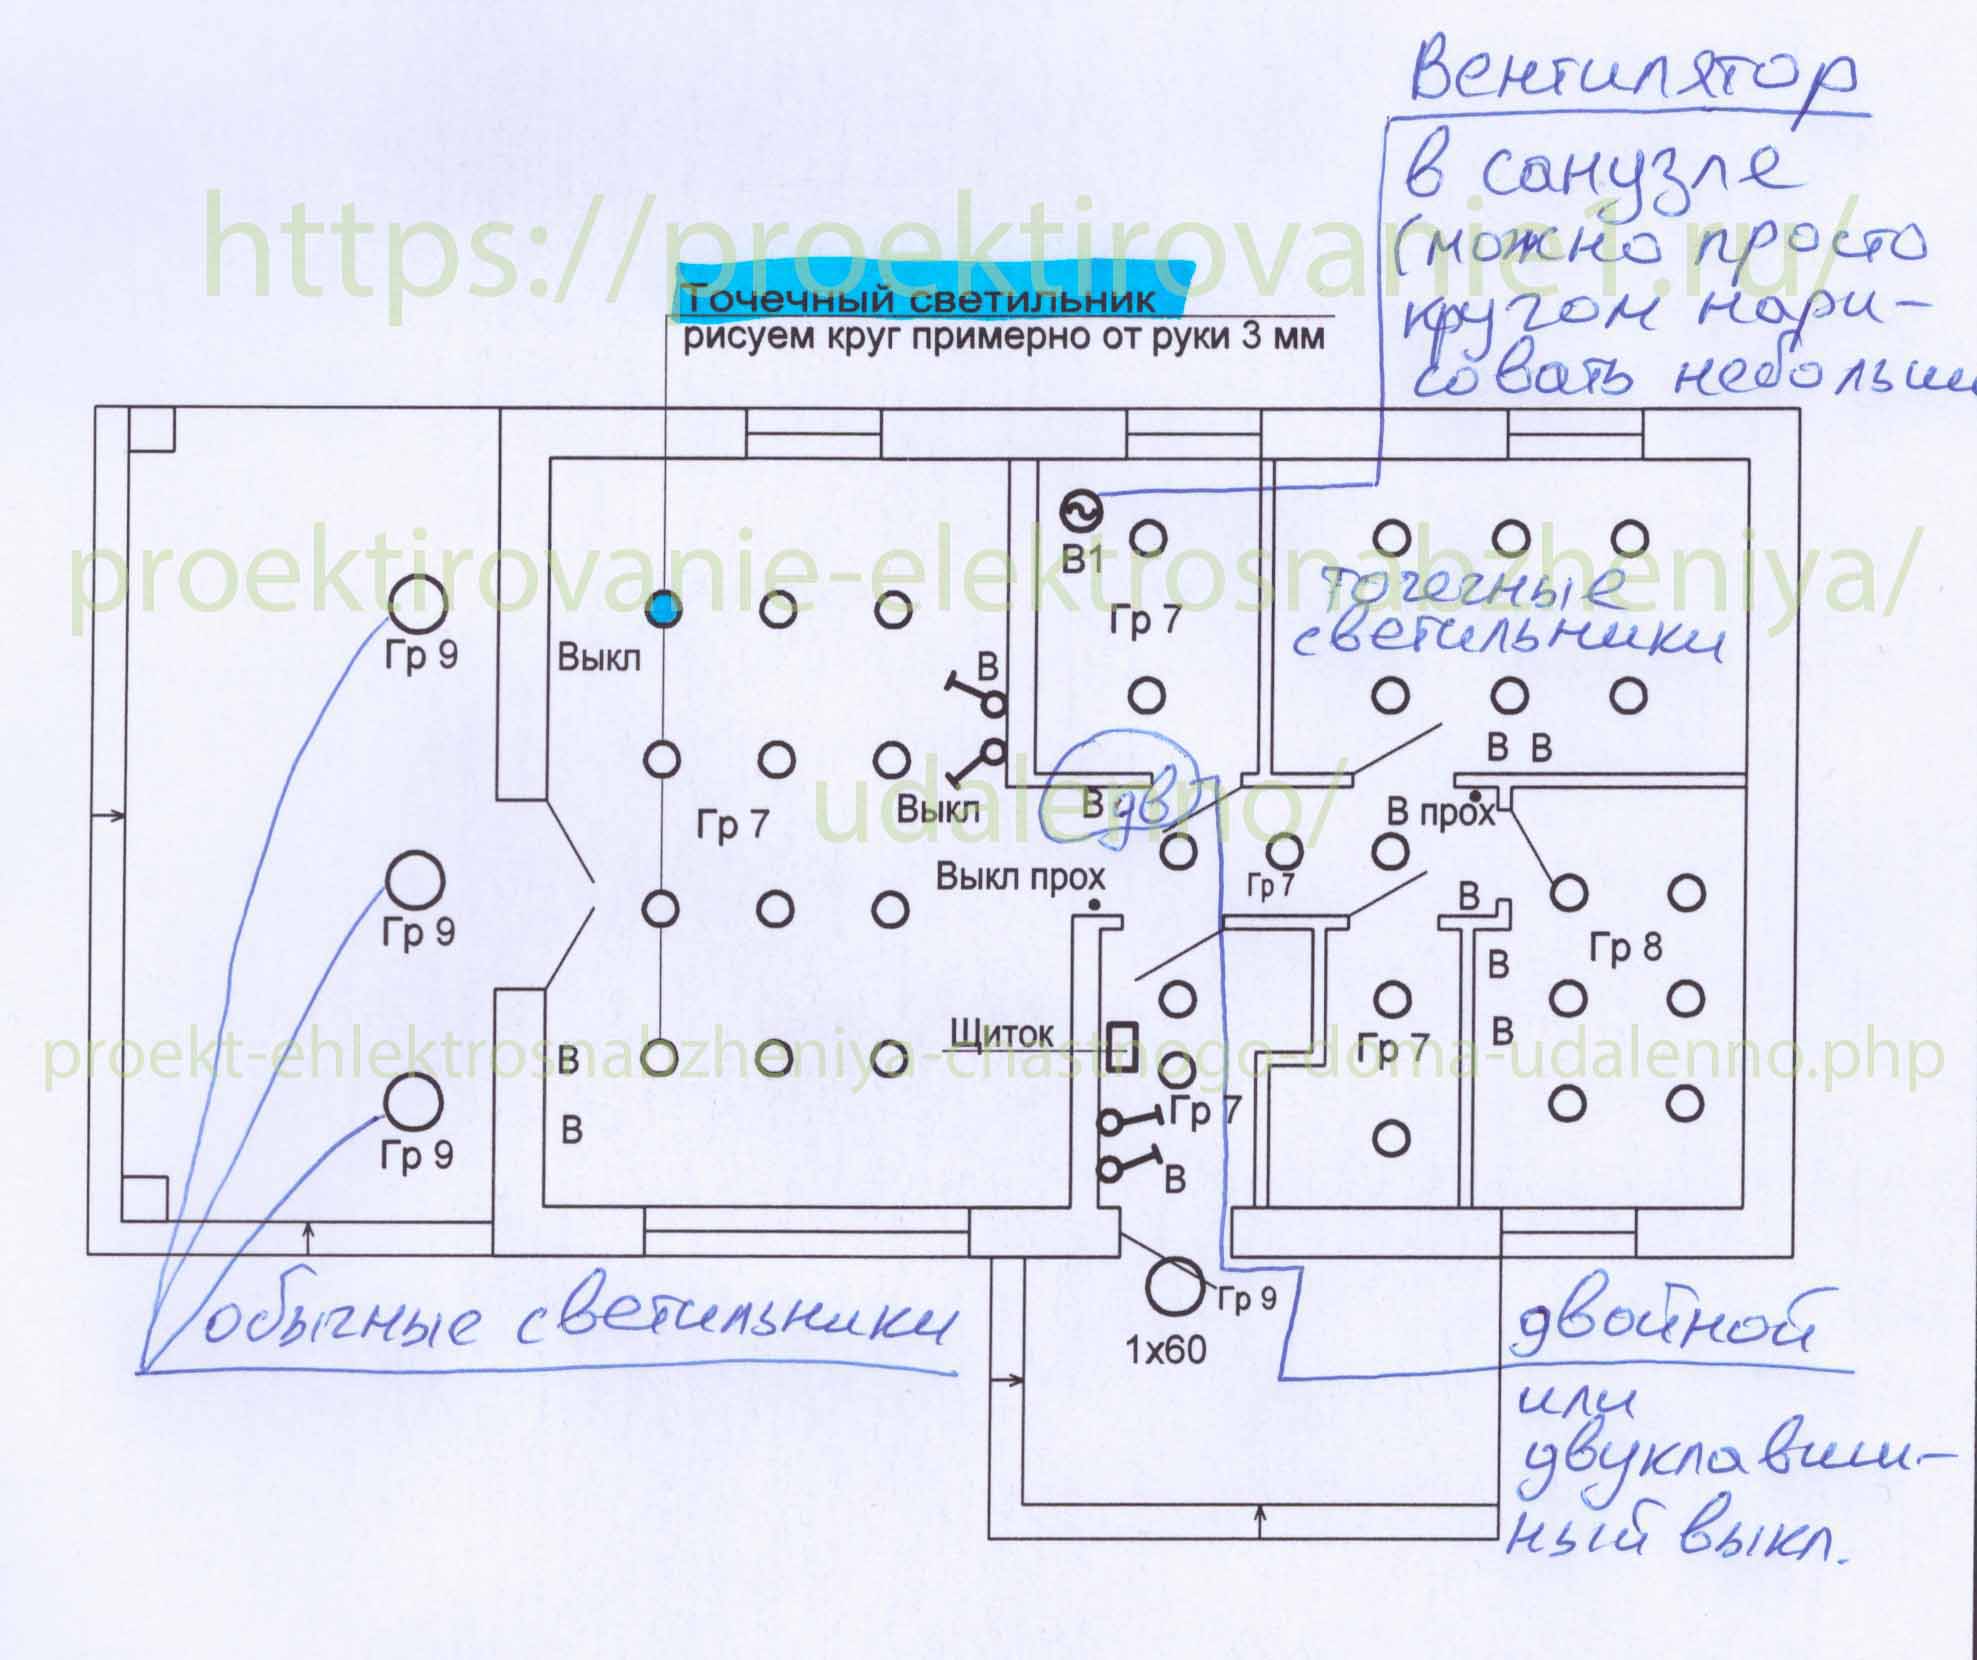 Вентилятор
в санузле
(можно просто
кругом нари-
совать
https://proektirovanie1.ru/
Точечный светильник
рисуем круг примерно от руки 3 мм
proektirovanie-elektrosnabzheniya/
В1
Гр 7
точечные
светильники
Гр 9
Выкл
В
В В
Гр 7
Выкл
В дв
В прох
udalenno/
Выкл прох
Гр 7
В
Гр 9
Гр 8
В
Щиток
Гр 7
В
proekt-ehlektrosnabzheniya-chastnogo-doma-udalenno.php
В
Гр 7
В
Гр 9
В
обычные светильники
Гр 9
1х60
двойной
или
двуклавиш-
ный выкл.